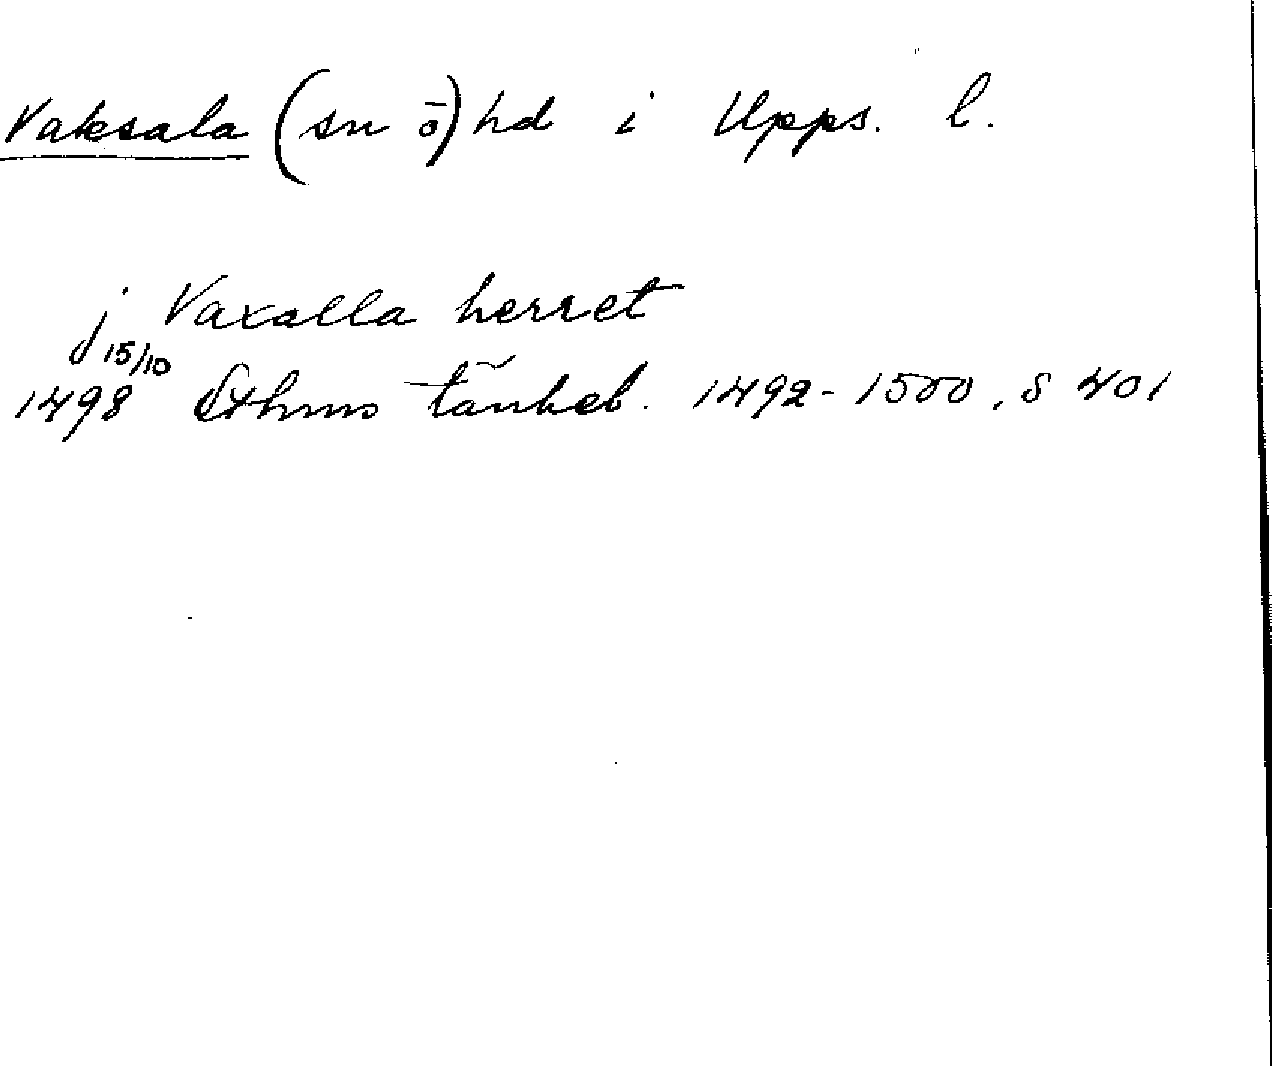 Vaksala (sn ō) hd i Upps. l.
j Vaxalla herret
15/10
1498 Sthms tänkeb. 1492-1500, S 401